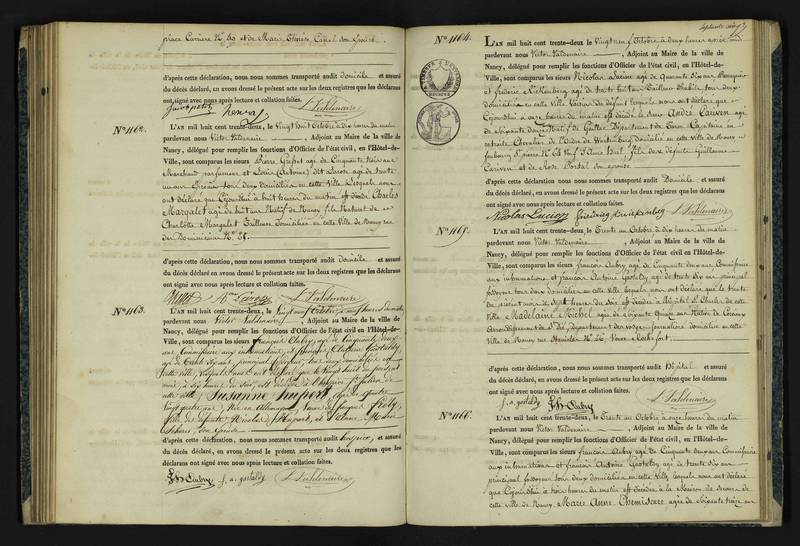 place Carrière N° 39 et de Marie Thérèse
d'après cette déclaration, nous nous sommes transporté audit domicile et assuré
du décès déclaré, en avons dressé le présent acte sur les deux registres que les déclarans
ont signé avec nous après lecture et collation faites.
N° 1162.
L'AN mil huit cent trente-deux le Vingt huit Octobre à dix heures du matin
pardevant nous Victor Valdenaire, Adjoint au Maire de la ville de
Nancy, délégué pour remplir les fonctions d'Officier de l'état civil, en l'Hôtel-de-
Ville, sont comparus les sieurs Pierre age de Cinquante trois ans
Marchand parfumeur et Louis (Antoine) dit age de trente
un ans tous deux domiciliés en cette Ville lesquels nous
ont déclaré que Cejourdhui à huit heures du matin est décédé Charles
Margalet age de huit ans Natif de Nancy fils Naturel de
Charlotte Margalet Tailleuse domiciliée en cette Ville de Nancy rue
des Dominicains N° 31.
d'après cette déclaration, nous nous sommes transporté audit domicile et assuré
du décès déclaré, en avons dressé le présent acte sur les deux registres que les déclarans
ont signé avec nous après lecture et collation faites.
N° 1163.
L'AN mil huit cent trente-deux, le Vingt neuf Octobre, à neuf heures du matin
pardevant nous Victor Valdenaire, Adjoint au Maire de la ville de
Nancy, délégué pour remplir les fonctions d'Officier de l'état civil en l'Hôtel-de-
Ville, sont comparus les sieurs François Aubry age de Cinquante deux
ans Commissaire aux inhumations, et françois Antoine Gastaldy
age de trente six ans, principal fossoyeur, tous deux domiciliés en
cette ville, lesquels nous ont déclaré que le vingt huit du présent
mois, à dix heures du soir, est décédée à l'hospice St Julien de
cette ville, Susanne Hupert, agée de quatre
vingt quatre ans, Née en Allemagne, Veuve de Jacques
fille de défunts Nicolas Hupert, et d'Anne Marie
son Epouse
d'après cette déclaration, nous nous sommes transporté audit hospice, et assuré
du décès déclaré, en avons dressé le présent acte sur les deux registres que les
déclarans ont signé avec nous après lecture et collation faites.
Fs Aubry f. a. gastaldy V Valdenaire
N° 1164.
L'AN mil huit cent trente-deux le Vingt neuf Octobre à deux heures après midi
pardevant nous Victor Valdenaire, Adjoint au Maire de la ville de
Nancy, délégué pour remplir les fonctions d'Officier de l'état civil, en l'Hôtel-de-
Ville, sont comparus les sieurs Nicolas Lucion age de Quarante Six ans
et frédéric age de trente huit ans Tailleur d'habits tous deux
domiciliés en cette Ville Voisins du défunt lesquels nous ont déclaré que
Cejourdhui à onze heures du matin est décédé le Sieur André Cauven age
de Soixante douze Natif de Gaillac Département du Tarn Capitaine en
retraite Chevalier de l'Ordre de Wurtemberg domicilié en cette Ville de Nancy
faubourg St pierre N° fils de défunts Guillaume
Cauven et de Rose Portal son épouse
d'après cette déclaration nous nous sommes transporté audit Domicile et assuré
du décès déclaré, en avons dressé le présent acte sur les deux registres que les déclarans
ont signé avec nous après lecture et collation faites.
Nicolas Lucion V Valdenaire
N° 1165.
L'AN mil huit cent trente-deux, le Trente un Octobre à dix heures du matin
pardevant nous Victor Valdenaire, Adjoint au Maire de la ville de
Nancy, délégué pour remplir les fonctions d'Officier de l'état civil, en l'Hôtel-de-
Ville, sont comparus les sieurs françois Aubry age de Cinquante deux ans Commissaire
aux inhumations et francois Antoine Gastaldy age de trente six ans principal
fossoyeur tous deux domiciliés en cette Ville lesquels nous ont déclaré que le trente
du présent mois à Sept heures du Soir est décédée à l'hôpital St Charles de cette
Ville Madelaine Michel agée de Soixante Quinze ans Native de
Arrondissement de St Dié Département des Vosges domiciliée en cette
Ville de Nancy rue N° 26 Veuve
d'après cette déclaration nous nous sommes transporté audit Hôpital et assuré
du décès déclaré, en avons dressé le présent acte sur les deux registres que les déclarans
ont signé avec nous après lecture et collation faites.
f. a. gastaldy Fs Aubry V Valdenaire
N° 1166.
L'AN mil huit cent trente-deux, le Trente un Octobre à onze heures du matin
pardevant nous Victor Valdenaire, Adjoint au Maire de la ville de
Nancy, délégué pour remplir les fonctions d'Officier de l'état civil, en l'Hôtel-de-
Ville, sont comparus les sieurs françois Aubry age de Cinquante deux ans Commissaire
aux inhumations et francois Antoine Gastaldy age de trente six ans
principal fossoyeur tous deux domiciliés en cette Ville lesquels nous ont déclaré
que Cejourdhui à trois heures du matin est décédée à la Maison de Secours de
cette ville de Nancy Marie Anne agée de Soixante treize ans